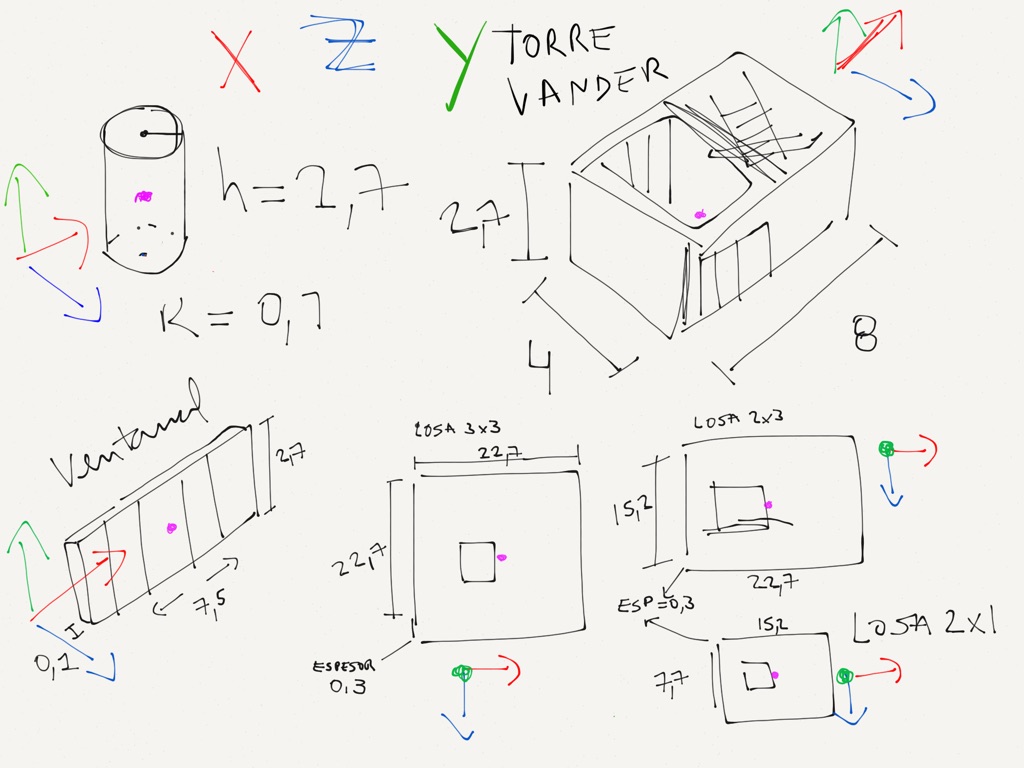 X Z Y TORRE
VANDER
h=2,7
R=0,7
2,7
4
8
Ventanal
2,7
7,5
0,1
LOSA 3x3
22,7
22,7
ESPESOR
0,3
LOSA 2x3
15,2
22,7
ESP=0,3
15,2
LOSA 2x1
7,7